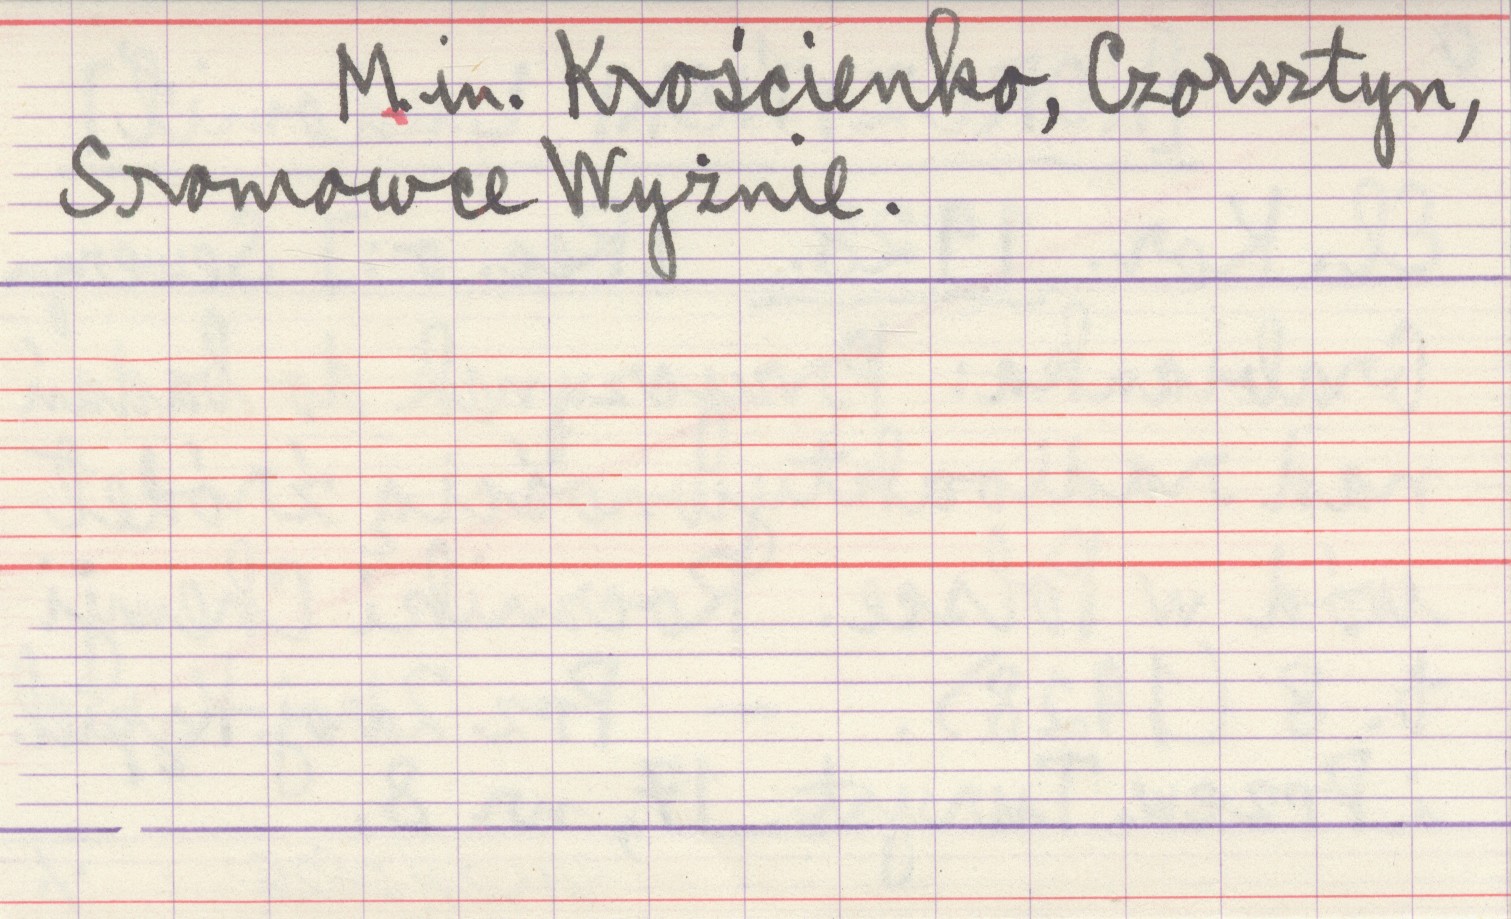 M.in. Krościenko, Czorsztyn,
Sromowce Wyżnie.